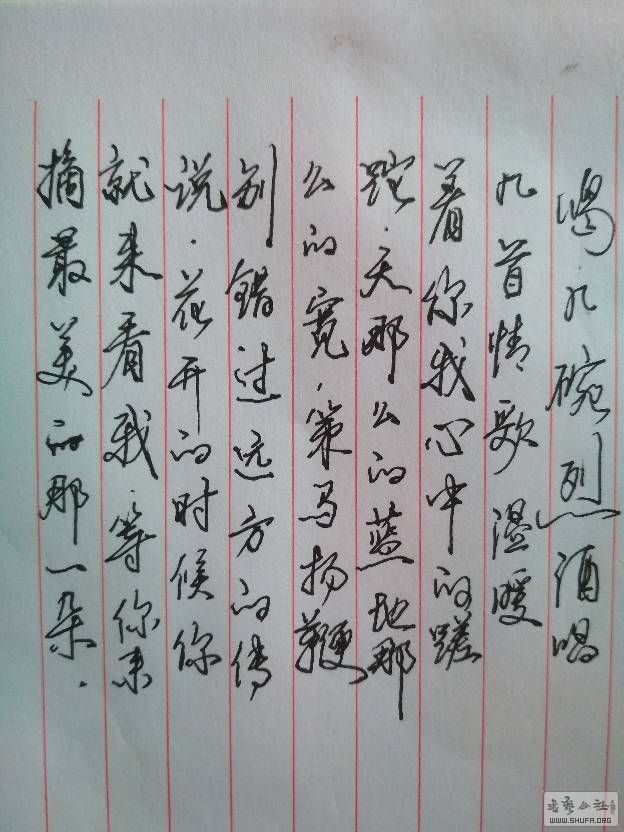 喝九碗烈酒唱
九首情歌温暖
着你我心中的蹉
跎.天那么的蓝地那
么的宽.策马扬鞭
别错过远方的传
说.花开的时候你
就来看我.等你来
摘最美的那一朵.
书艺公社
WWW.SHUFA.ORG